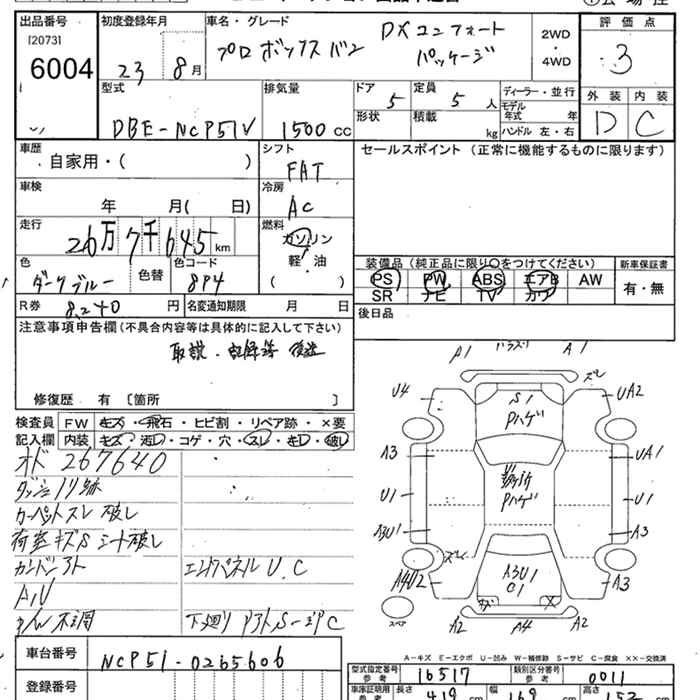 出品番号
[20731]
6004
初度登録年月
23 8月
車名・グレード
プロボックスバン DXコンフォートパッケージ
2WD
・
4WD
評価点
3
外装 内装
D C
型式
DBE-NCP51V
排気量
1500 cc
ドア
5
定員
5 人
形状
積載
kg
ディーラー・並行
モデル年式 年
ハンドル 左・右
車歴
自家用・( )
シフト
FAT
セールスポイント (正常に機能するものに限ります)
車検
年 月( 日)
冷房
AC
走行
26万7千645km
燃料
ガソリン
軽・油
( )
色
ダークブルー
色替
色コード
8P4
装備品(純正品に限り○をつけてください)
PS PW ABS エアB AW
SR ナビ TV カワ
新車保証書
有・無
R券 8,240 円
名変通知期限 月 日
後日品
注意事項申告欄(不具合内容等は具体的に記入して下さい)
取説・記録簿 後送
修復歴 有 〔箇所 〕
検査員
記入欄
FW キズ・飛石・ヒビ割・リペア跡・×要
内装 キズ・汚レ・コゲ・穴・スレ・キレ・破レ
オド 267640
ダッシュノリ跡
カーペットスレ 破レ
荷室キズS シート破レ
エンドパネル U、C
A/V
P/W 不調
下廻り
A1
A1
ズレ
U4
S1
Pハゲ
UA2
A3
UA1
Pハゲ
U1
U1
A3U1
A3
ズレ
A4U2
A3U1
C1
A3
スペア
A2
A4
A2
A-キズ E-エクボ U-凹み W-補修跡 S-サビ C-腐食 ××-交換済
車台番号
NCP51-0265606
登録番号
型式指定番号 参考
16517
類別区分番号 参考
0011
車庫証明用 参考
長さ 419 cm
幅 169 cm
高さ